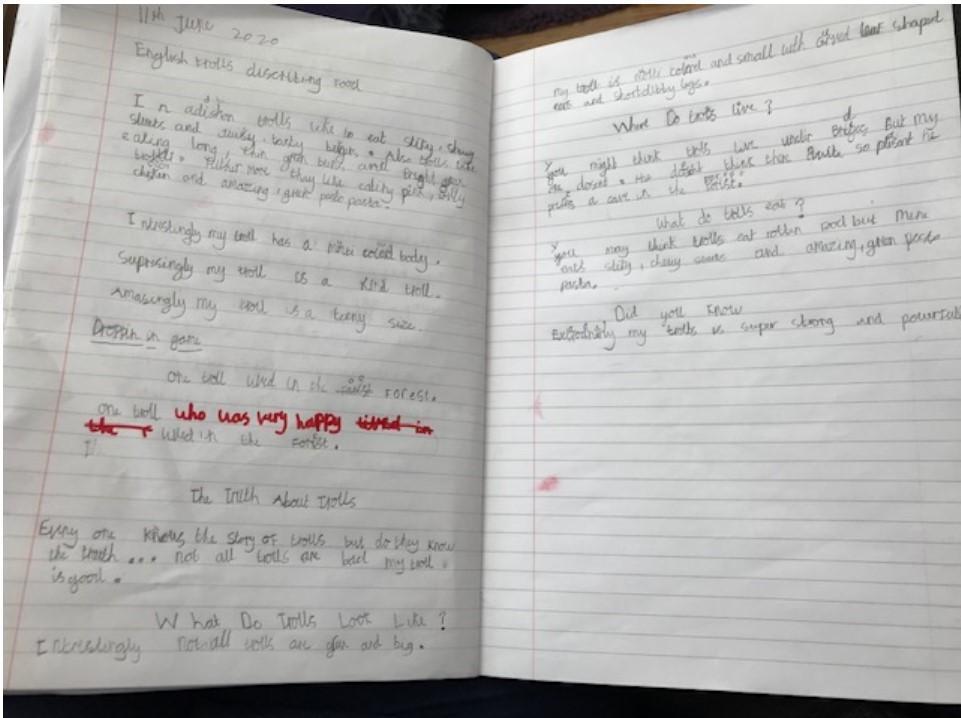 11th June 2020
English trolls discribing food
In adishon trolls like to eat slity, chewy
slunts and Juicy, tasty
eating long, thin gren and Bright gren
more they like eating pink,
chiken and amazing, gren pasta.
Intrestingly my troll has a body.
Suprosingly my troll is a Kind troll.
Amasingly my troll is a teeny size.
Droppin in game
One troll lived in the Forest.
one troll who was very happy lived in
the lived in the Forest.
The Truth About Trolls
Evrey one knows the story of trolls but do they know
the trouth... not all trolls are bad my troll
is good.
What Do Trolls Look Like?
Intrestingly not all trolls are gren and big.
my troll is colord and small with leaf shaped
ears and legs.
Where Do trolls Live?
You might think trolls live under Briges But my
one dosent. He dosent think thar so plesent he
prefers a cave in the forist.
What do trolls eat?
You may think trolls eat rotten food but mine
eats slity, chewy and amazing, gren pesto
pasta.
Did you know
my trolls is super strong and powerful